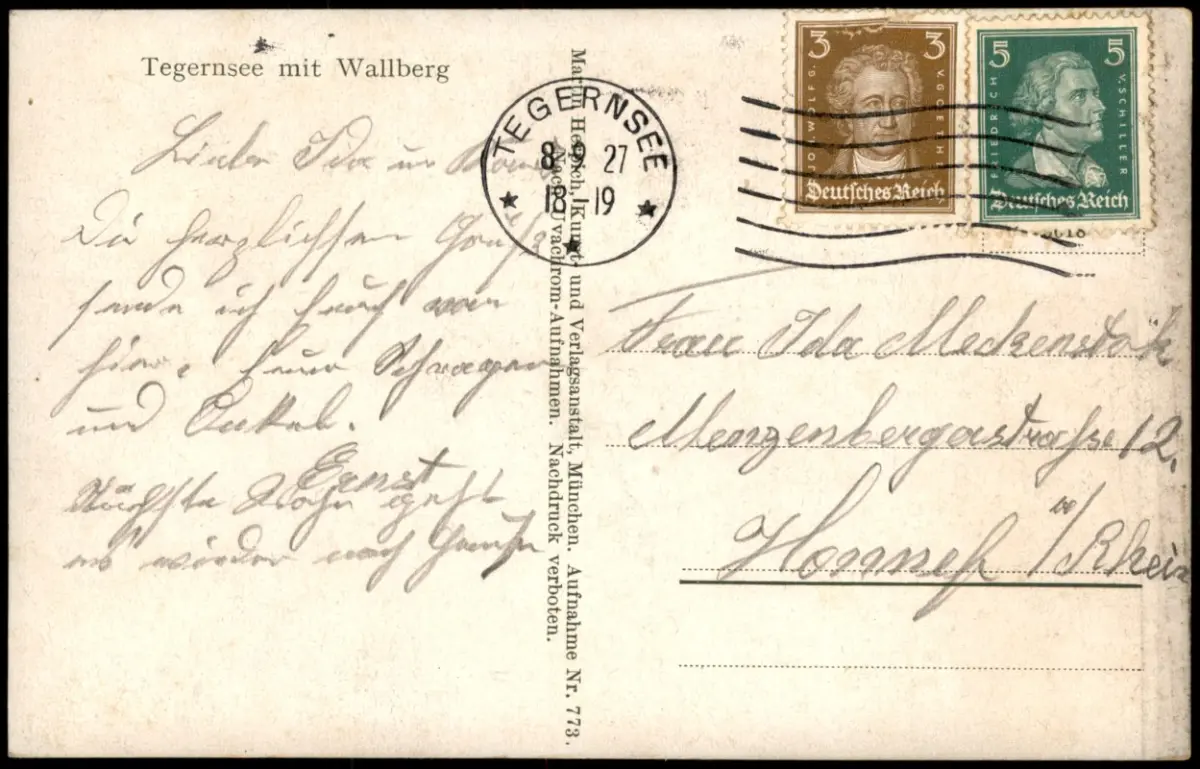 Tegernsee mit Wallberg
Liebe Ida u
Die herzlichsten Grüße
sende ich Euch von
hier. Euer Schwager
und Onkel.
Ernst
Nächste Woche geht
es wieder nach Hause
Martin Herpich, Kunst- und Verlagsanstalt, München. Aufnahme Nr. 773.
Nach Uvachrom-Aufnahmen. Nachdruck verboten.
TEGERNSEE
8 9 27
18 19
3 3
JOH. WOLFG. V. GOETHE
Deutsches Reich
5 5
FRIEDRICH V. SCHILLER
Deutsches Reich
Frau Ida Meckenstock
Menzenbergerstraße 12.
Honnef a/Rhein